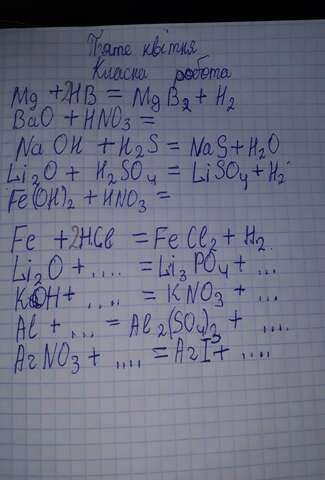 П'яте квітня
Класна робота
Mg + 2HB = MgB2 + H2
BaO + HNO3 =
NaOH + H2S = NaS + H2O
Li2O + H2SO4 = LiSO4 + H2
Fe(OH)2 + HNO3 =
Fe + 2HCl = FeCl2 + H2
Li2O + .... = Li3PO4 + ...
KOH + .... = KNO3 + ...
Al + ... = Al2(SO4)3 + ....
ArNO3 + .... = ArI + ....